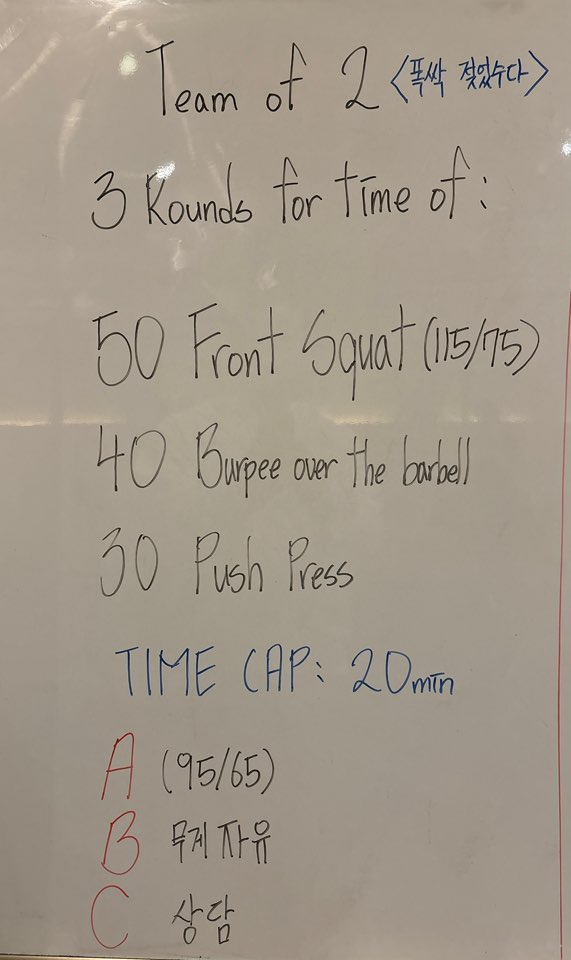 Team of 2 <폭싹 젖었수다>
3 Rounds for time of :
50 Front Squat (115/75)
40 Burpee over the barbell
30 Push Press
TIME CAP: 20min
A (95/65)
B 무게 자유
C 상담